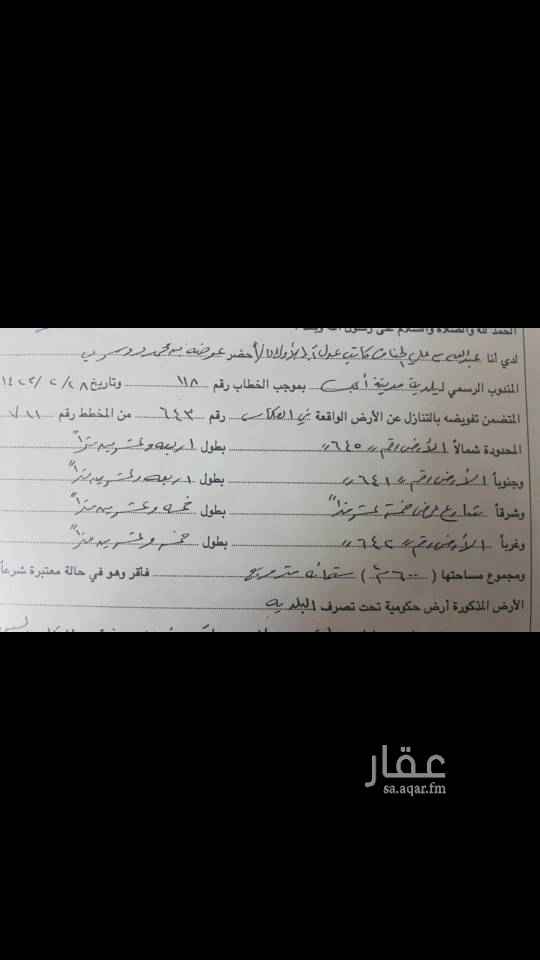 الحمد لله والصلاة والسلام على رسول الله وبعد :
لدي أنا عبدالله بن علي كاتب عدل أحضر عوضه بن محمد
المندوب الرسمي لبلدية مدينة أبها بموجب الخطاب رقم ١١٨ وتاريخ ٢٨ / ٢ / ١٤٢٢
المتضمن تفويضه بالتنازل عن الأرض الواقعة في العكاس رقم ٦٤٣ من المخطط رقم
المحدودة شمالاً الأرض رقم ٦٤٥ بطول أربعه وعشرين متراً
وجنوباً الأرض رقم ٦٤١ بطول أربعه وعشرين متراً
وشرقاً شارع عرض خمسة عشر متراً بطول خمسه وعشرين متراً
وغرباً الأرض رقم ٦٤٢ بطول خمسه وعشرين متراً
ومجموع مساحتها ( ٦٠٠ م٢ ) ستمائه متر مربع فأقر وهو في حالة معتبرة شرعاً
الأرض المذكورة أرض حكومية تحت تصرف البلديه
عقار
sa.aqar.fm